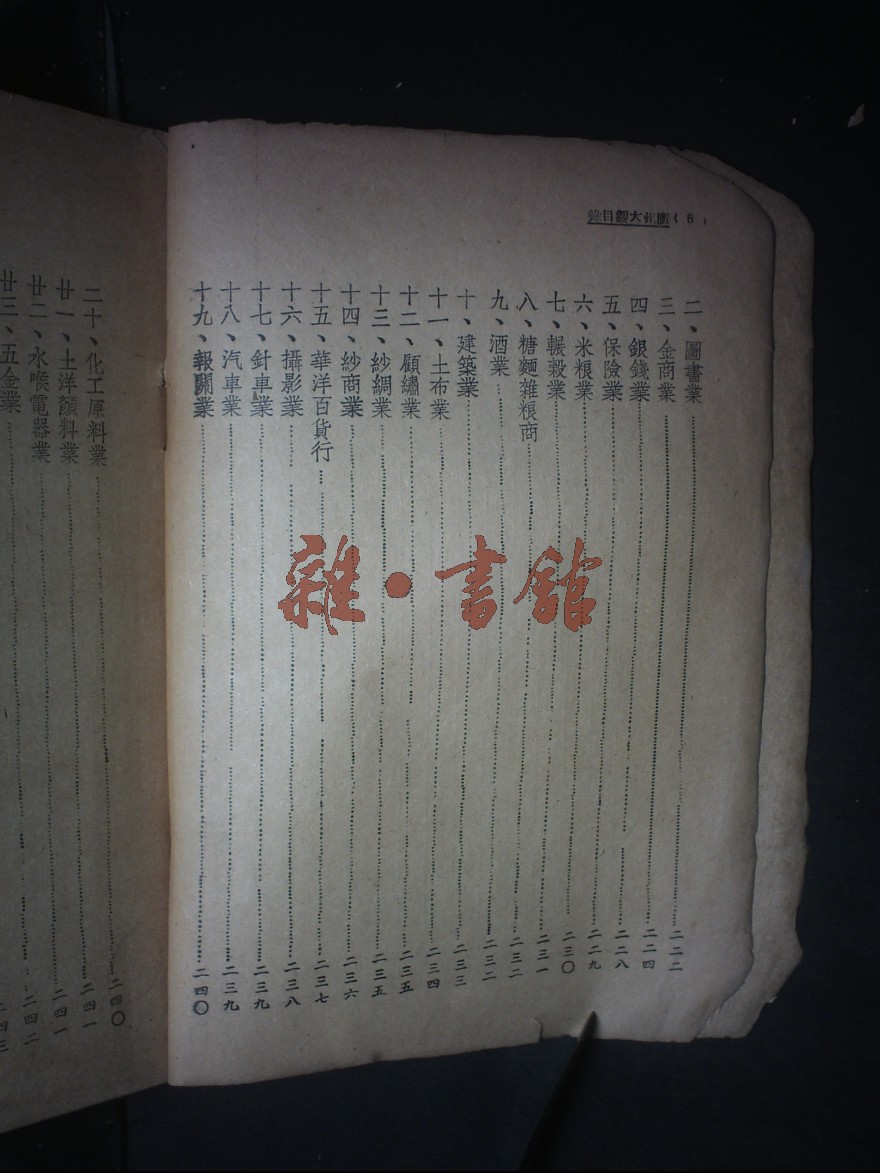 (6)廣州大觀目錄
二、圖書業……二二二
三、金商業……二二四
四、銀錢業……二二八
五、保險業……二二九
六、米粮業……二三〇
七、輾穀業……二三一
八、糖麵雜粮商……二三二
九、酒業……二三二
十、建築業……二三三
十一、土布業……二三四
十二、顧繡業……二三五
十三、紗綢業……二三五
十四、紗商業……二三六
十五、華洋百貨行……二三七
十六、攝影業……二三八
十七、針車業……二三九
十八、汽車業……二三九
十九、報關業……二四〇
二十、化工原料業……二四〇
廿一、土洋顏料業……二四一
廿二、水喉電器業……二四一
廿三、五金業……二四二
二四三
雜·書館